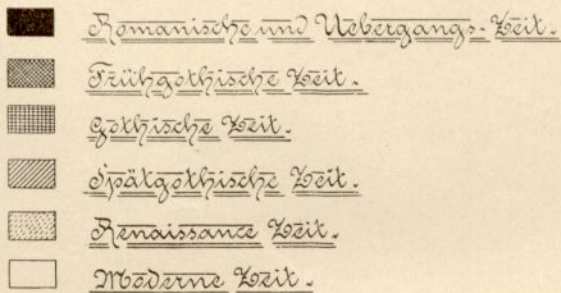 Romanische und Uebergangs-Zeit.
Frühgothische Zeit.
Gothische Zeit.
Spätgothische Zeit.
Renaissance Zeit.
Moderne Zeit.